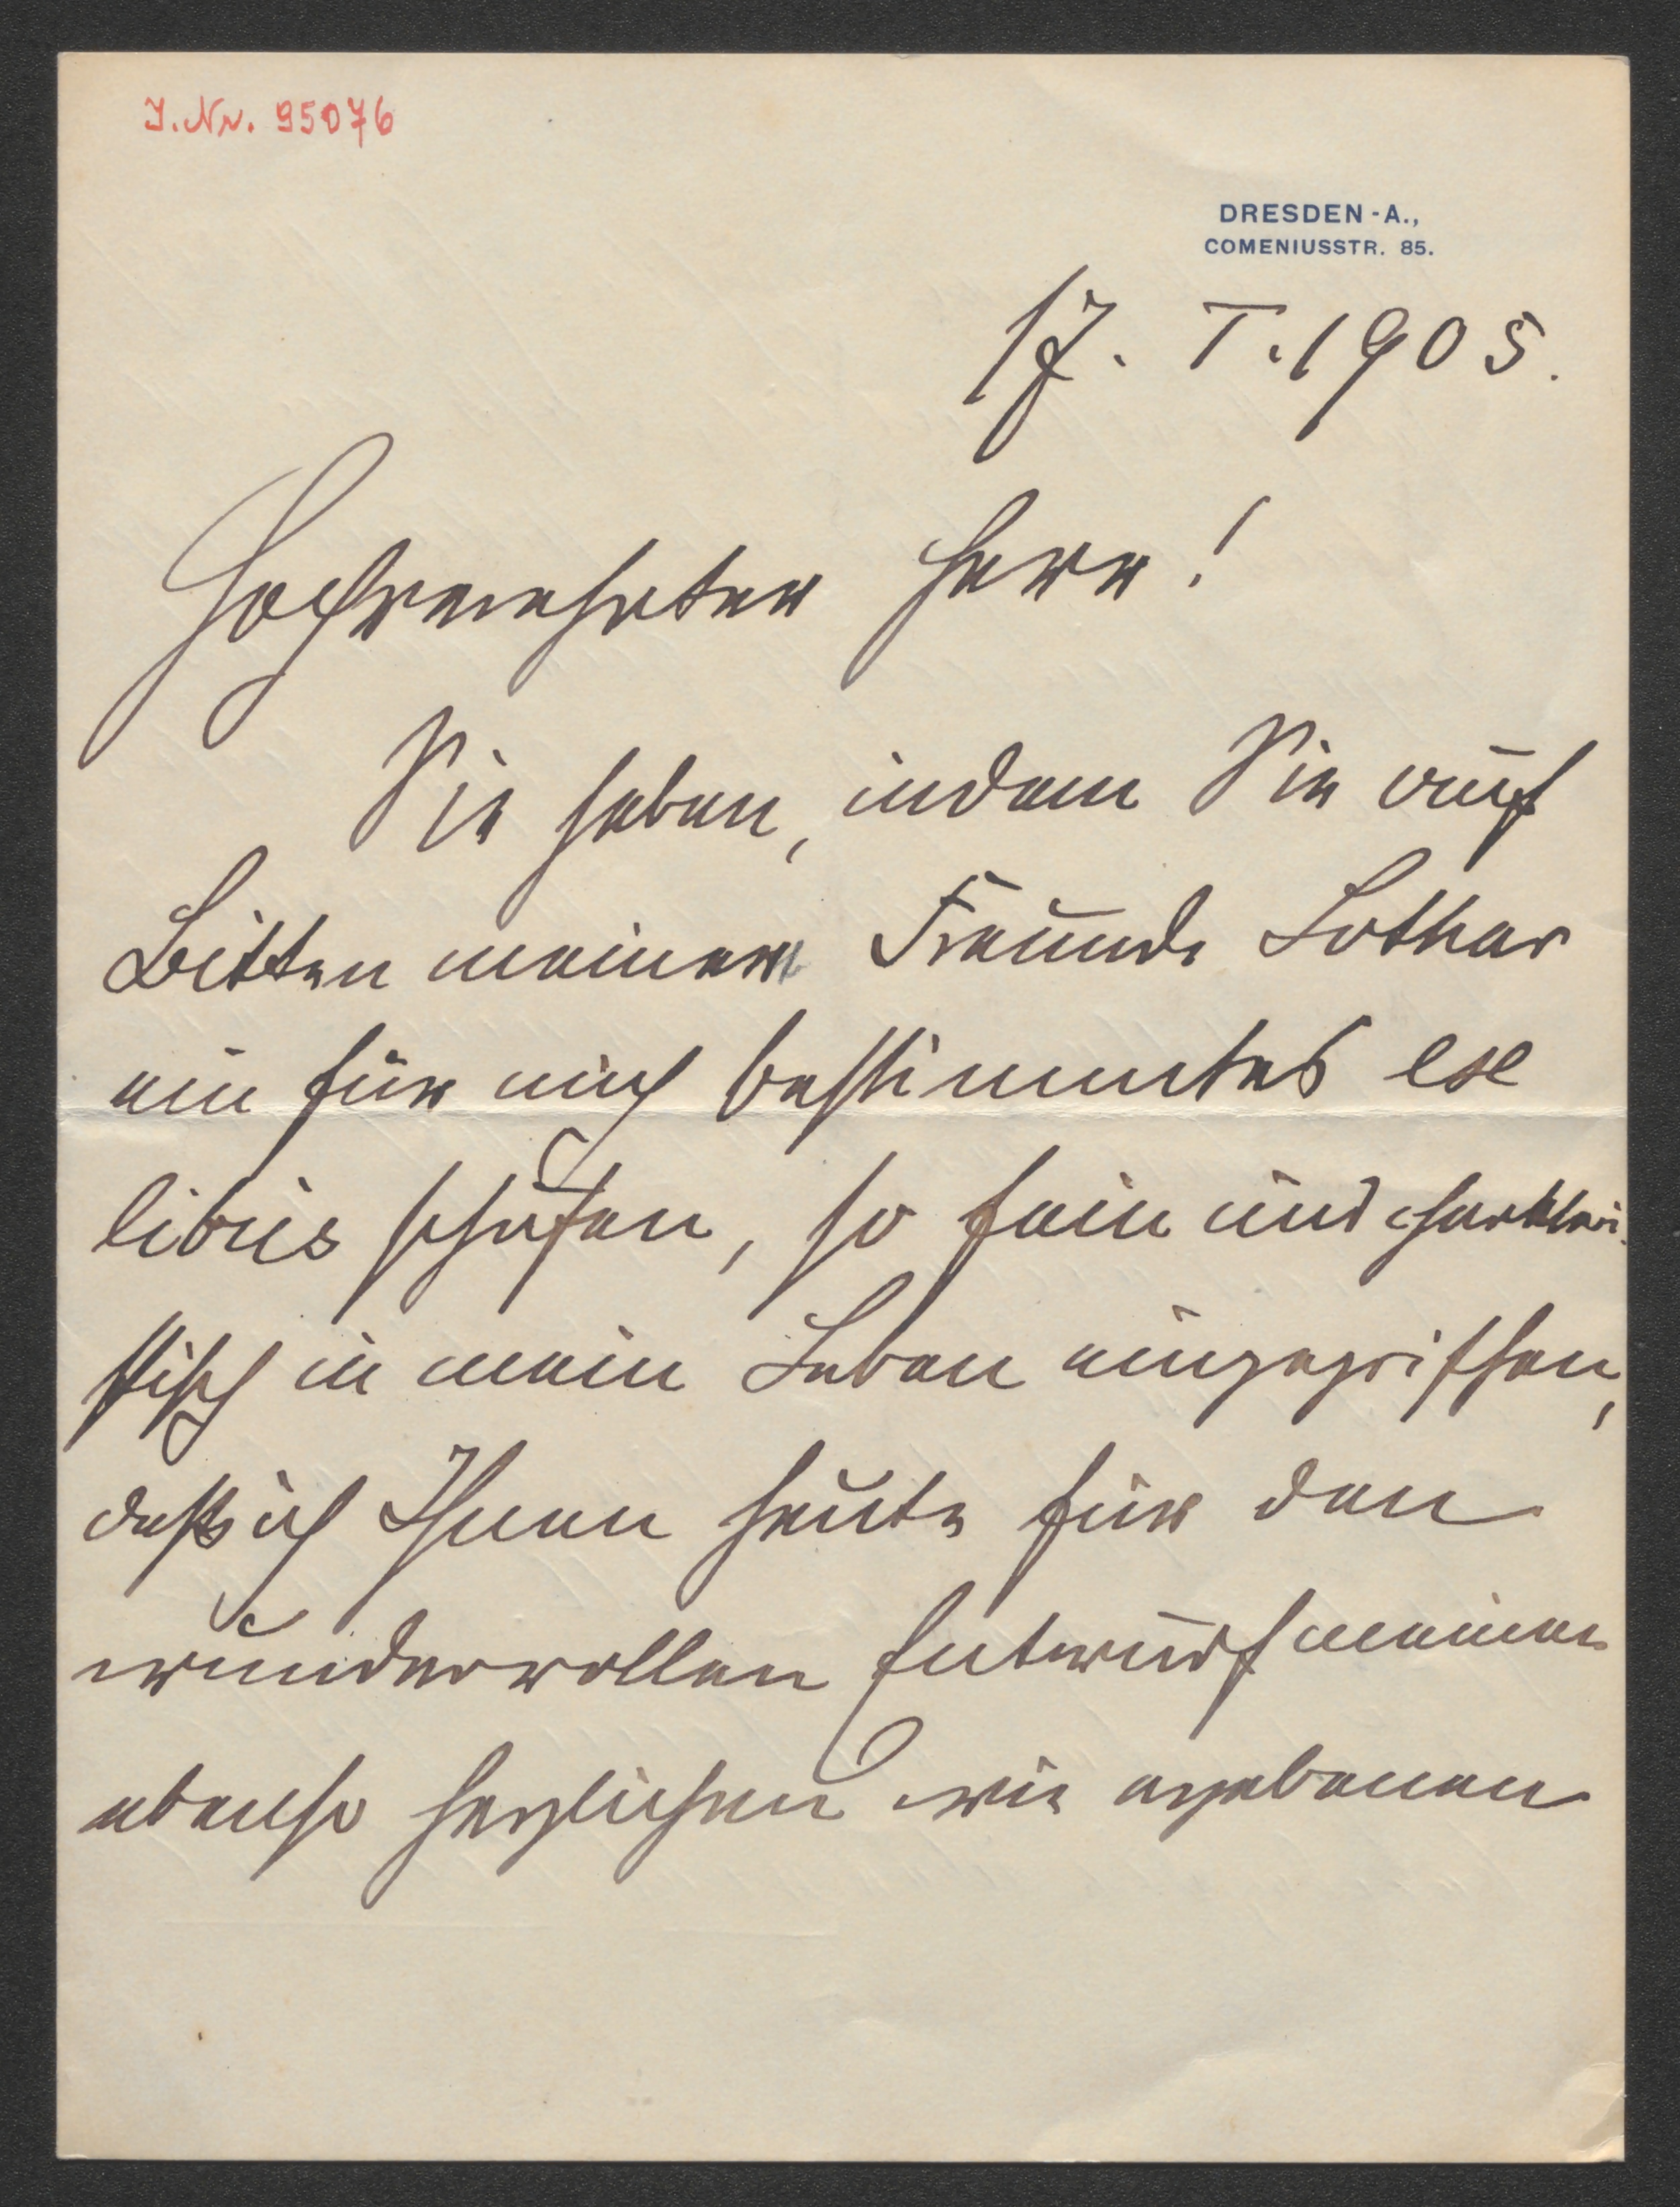 J.Nr. 95076
DRESDEN-A.,
COMENIUSSTR. 85.
17. I. 1905.
Hochverehrter Herr!
Sie haben, indem Sie auf
Bitten meiner Freunde Lothar
ein für mich bestimmtes ex
libris schufen, so fein und charkteri-
stisch in mein Leben eingegriffen,
daß ich Ihnen heute für den
wundervollen Entwurf meinen
ebenso herzlichen wie ergebenen